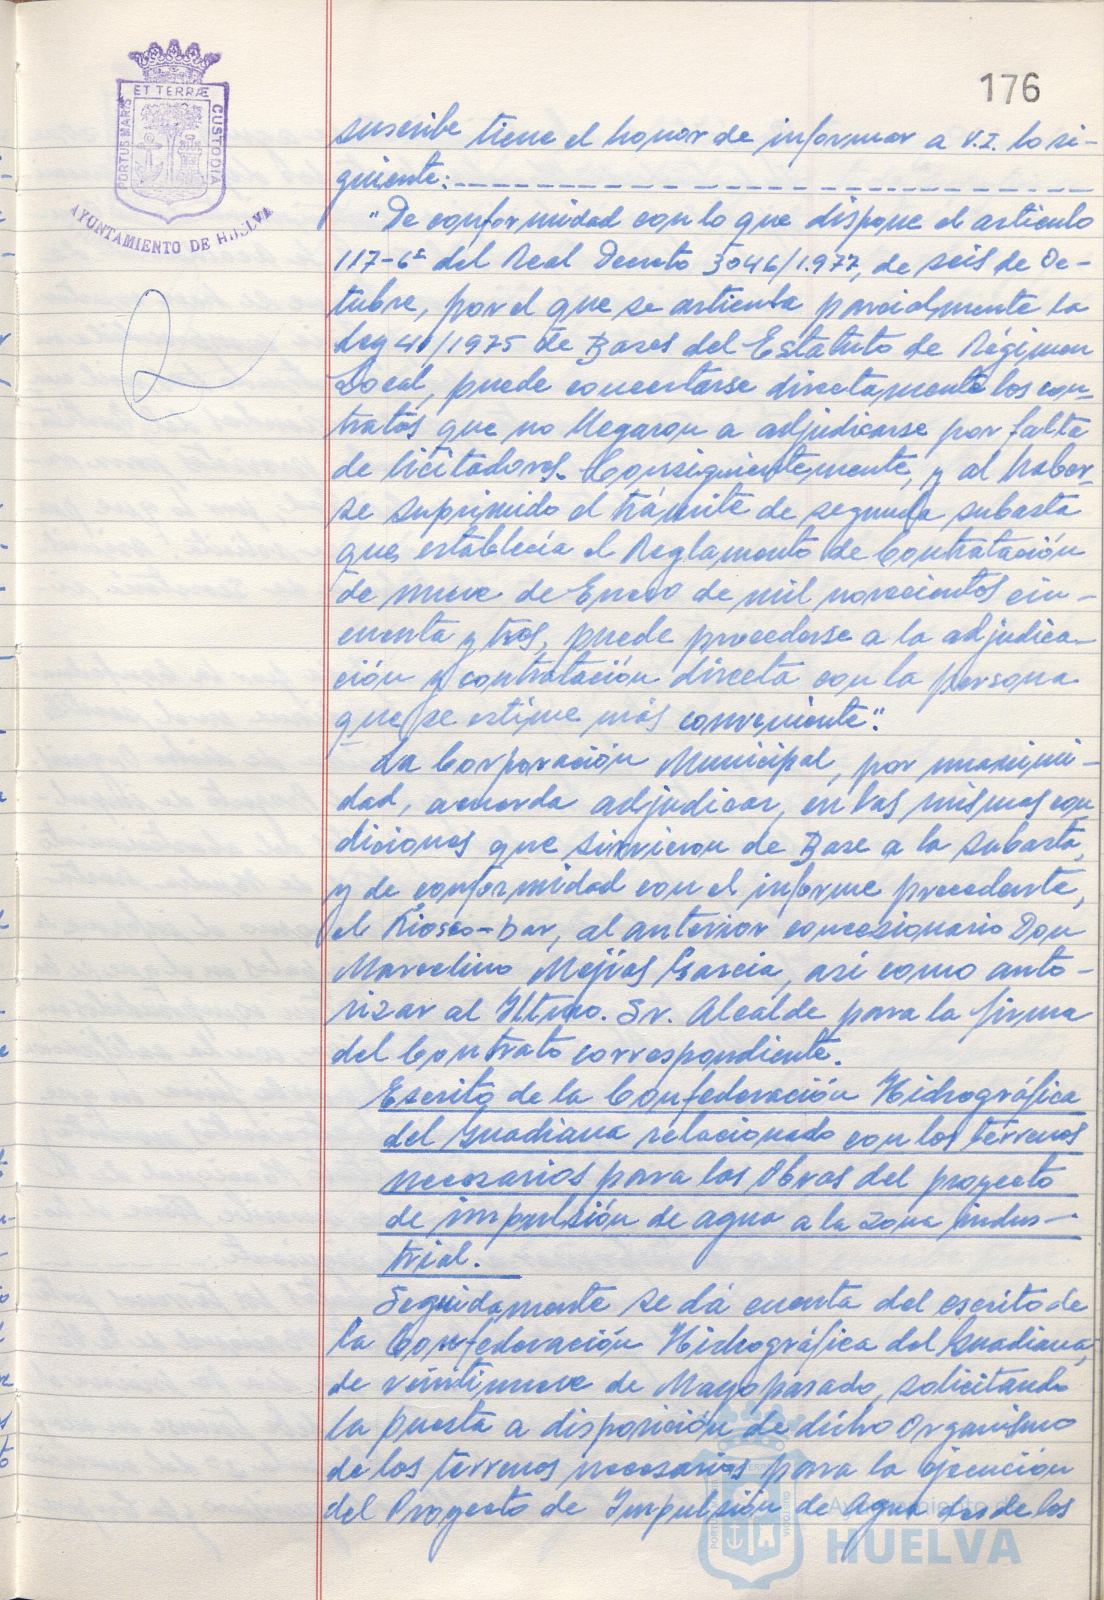 176
ET TERRÆ
PORTUS MARIS
CUSTODIA
AYUNTAMIENTO DE HUELVA
suscribe tiene el honor de informar a V.I. lo si-
guiente:
"De conformidad con lo que dispone el artículo
117-6º del Real Decreto 3046/1.977, de seis de Oc-
tubre, por el que se articula parcialmente la
Ley 41/1975 de Bases del Estatuto de Régimen
Local, puede concertarse directamente los con-
tratos que no llegaron a adjudicarse por falta
de licitadores. Consiguientemente, y al haber-
se suprimido el trámite de segunda subasta
que establecía el Reglamento de Contratación
de nueve de Enero de mil novecientos cin-
cuenta y tres, puede procederse a la adjudica-
ción y contratación directa con la persona
que se estime más conveniente".
La Corporación Municipal, por unanimi-
dad, acuerda adjudicar, en las mismas con
diciones que sirvieron de Base a la subasta,
y de conformidad con el informe precedente,
el Kiosco-bar, al anterior concesionario Don
Marcelino Mejías García, así como auto-
rizar al Iltmo. Sr. Alcalde para la firma
del Contrato correspondiente.
Escrito de la Confederación Hidrográfica
del Guadiana relacionado con los terrenos
necesarios para las Obras del proyecto
de impulsión de agua a la zona indus-
trial.
Seguidamente se dá cuenta del escrito de
la Confederación Hidrográfica del Guadiana,
de veintinueve de Mayo pasado, solicitando
la puesta a disposición de dicho Organismo
de los terrenos necesarios para la ejecución
del Proyecto de Impulsión de Agua desde los
Ayuntamiento de
HUELVA